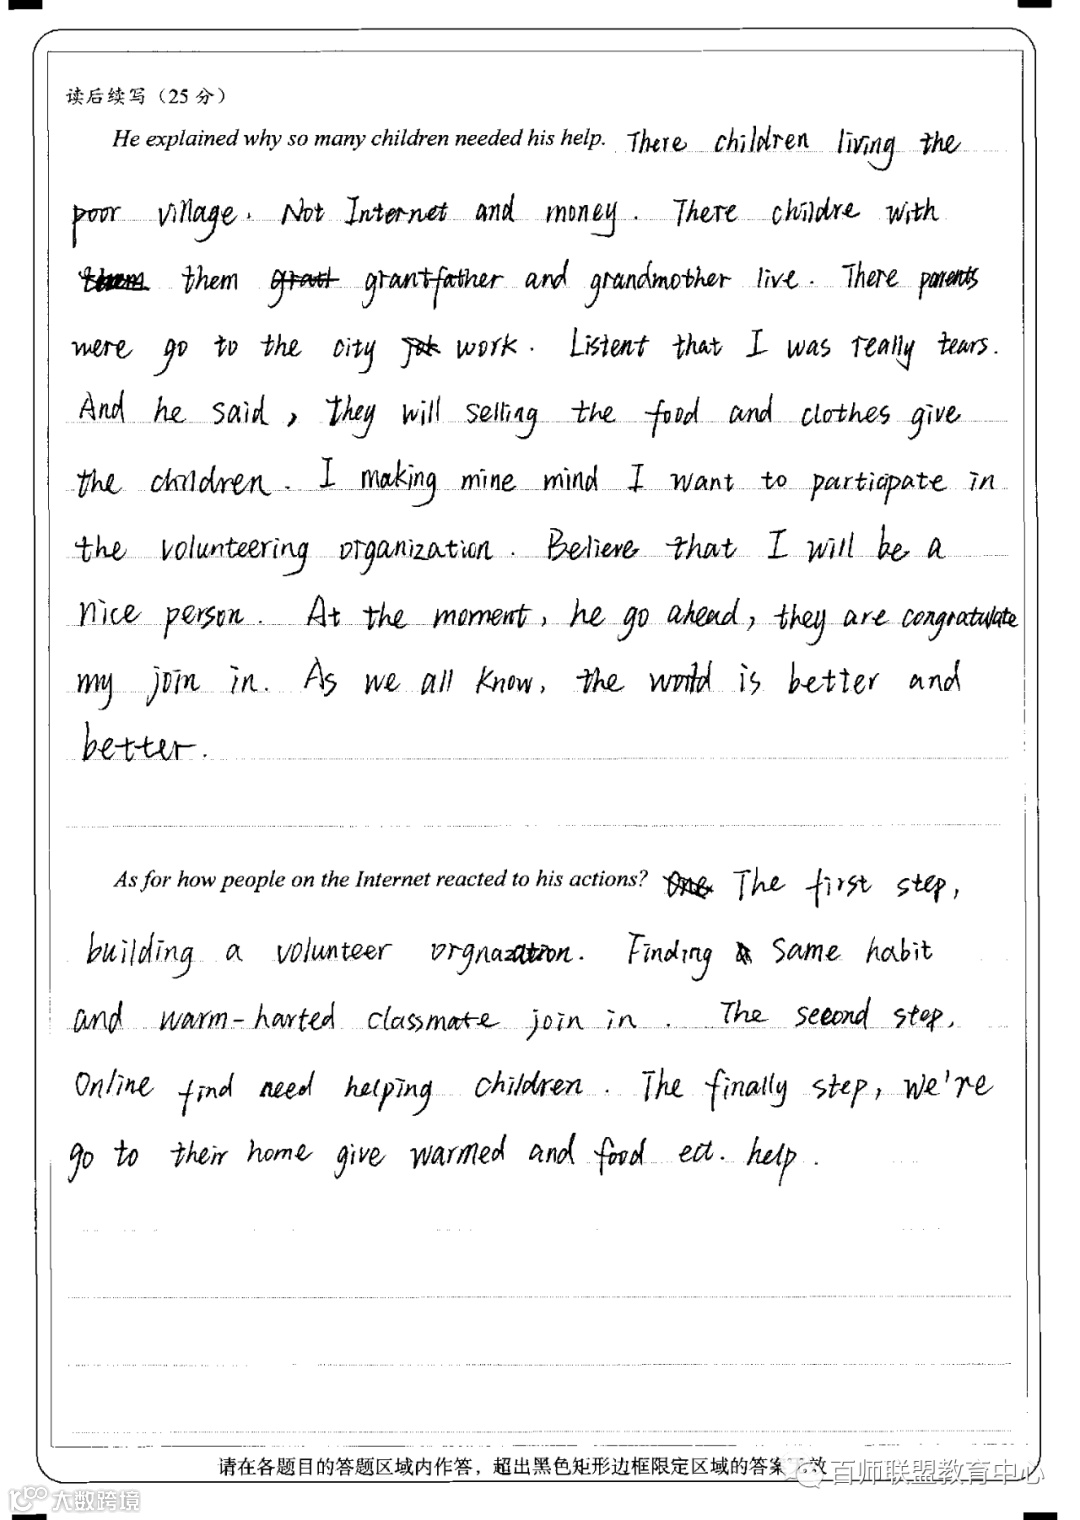 读后续写（25 分）
He explained why so many children needed his help. There children living the
poor village. Not Internet and money. There childre with
them grantfather and grandmother live. There parents
were go to the city work. Listent that I was really tears.
And he said, they will selling the food and clothes give
the children. I making mine mind I want to participate in
the volunteering organization. Believe that I will be a
nice person. At the moment, he go ahead, they are congratulate
my join in. As we all know, the world is better and
better.
As for how people on the Internet reacted to his actions? The first step,
building a volunteer orgnazation. Finding same habit
and warm-harted classmate join in. The second step,
Online find need helping children. The finally step, we're
go to their home give warmed and food ect. help.
请在各题目的答题区域内作答，超出黑色矩形边框限定区域的答案无效
百师联盟教育中心
大数跨境